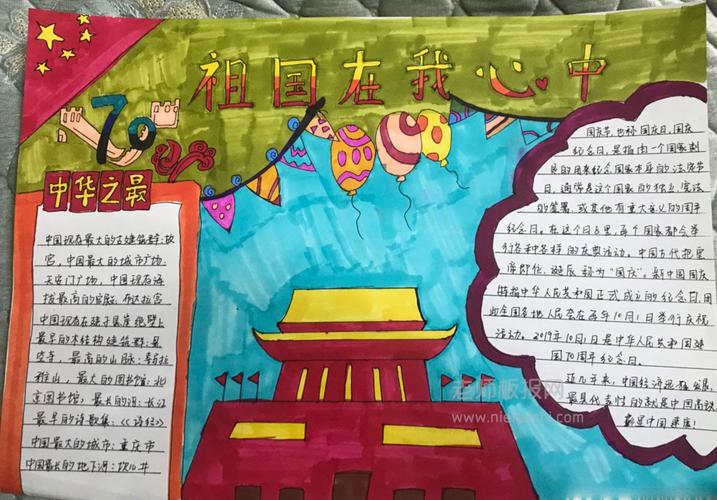 祖国在我心中
70
中华之最
中国现存最大的古建筑群:故
宫,中国最大的城市广场:
天安门广场,中国现存海
拔最高的宫殿:布达拉宫
中国现存在建于悬崖绝壁上
最早的木结构建筑群:悬
空寺,最高的山脉:喜马拉
雅山,最大的图书馆:北
京图书馆,最长的河:长江
最早的诗歌集:《诗经》
中国最大的城市:重庆市
中国最长的地下河:坎儿井
国庆节,也称国庆日、国庆
纪念日,是指由一个国家制
定的用来纪念国家本身的法定节
日,通常是这个国家的独立、宪法
的签署,或其他有重大意义的周年
纪念日。在这个日子里,每个国家都会举
行各种各样的庆祝活动。中国古代把皇
帝即位、诞辰称为"国庆",新中国国庆
特指中华人民共和国正式成立的纪念日,因
此全国各地人民会在每年10月1日举行庆祝
活动。2019年10月1日是中华人民共和国建
国70周年纪念日。
近几年来,中国经济迅猛发展,
最具代表性的就是中国高铁
老师板报网